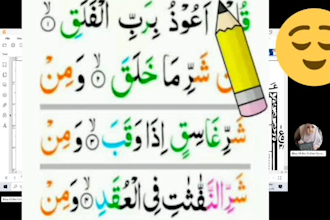 قُلْ اَعُوْذُ بِرَبِّ الْفَلَقِ ۙ۱
مِنْ شَرِّ مَا خَلَقَ ۙ۲ وَمِنْ
شَرِّ غَاسِقٍ اِذَا وَقَبَ ۙ۳ وَمِنْ
شَرِّ النَّفّٰثٰتِ فِی الْعُقَدِ ۙ۴ وَمِنْ